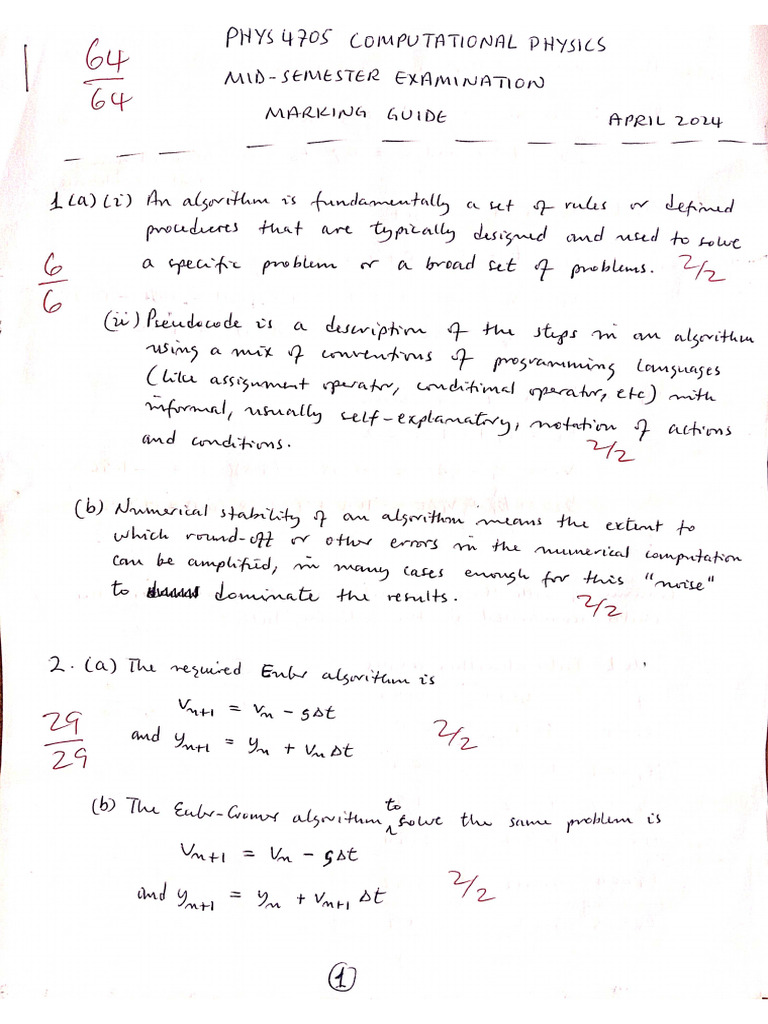 64
64
PHYS 4705 COMPUTATIONAL PHYSICS
MID-SEMESTER EXAMINATION
MARKING GUIDE
APRIL 2024
1(a)(i) An algorithm is fundamentally a set of rules or defined
procedures that are typically designed and used to solve
a specific problem or a broad set of problems. 2/2
6
6
(ii) Pseudocode is a description of the steps in an algorithm
using a mix of conventions of programming languages
(like assignment operator, conditional operator, etc) with
informal, usually self-explanatory, notation of actions
and conditions. 2/2
(b) Numerical stability of an algorithm means the extent to
which round-off or other errors in the numerical computation
can be amplified, in many cases enough for this "noise"
to dominate the results. 2/2
2. (a) The required Euler algorithm is
vₙ₊₁ = vₙ - gΔt
29
29
and yₙ₊₁ = yₙ + vₙ Δt 2/2
(b) The Euler-Cromer algorithm to solve the same problem is
vₙ₊₁ = vₙ - gΔt
and yₙ₊₁ = yₙ + vₙ₊₁ Δt 2/2
1